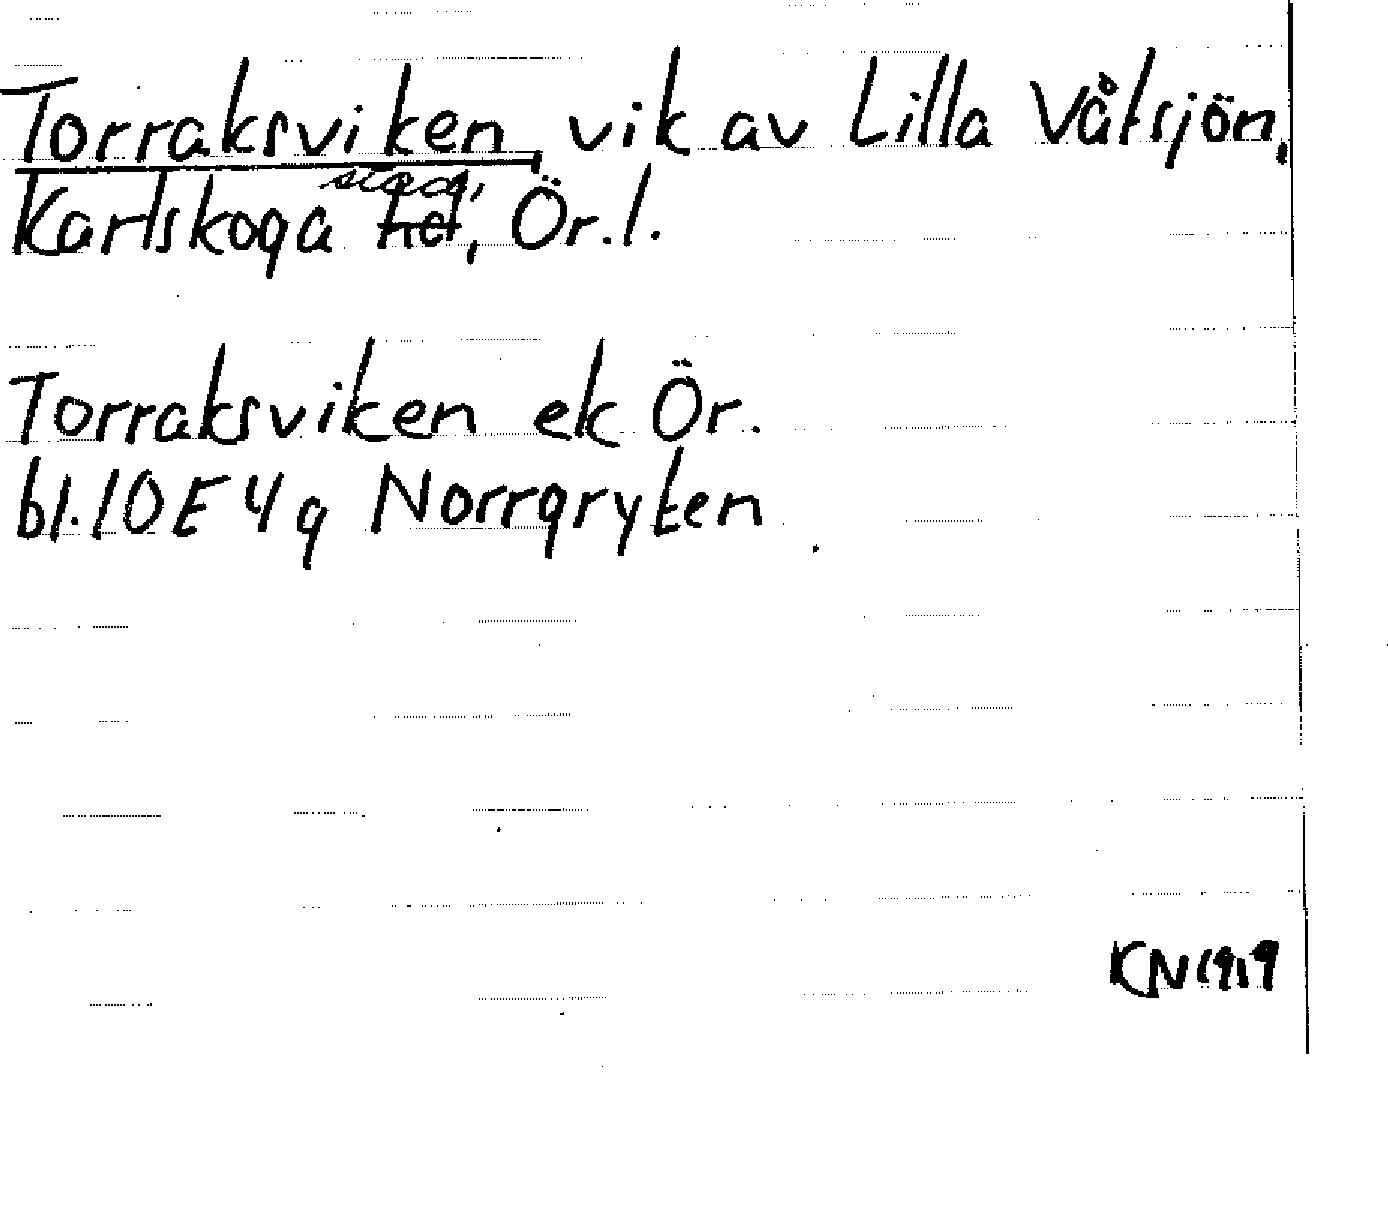 Torraksviken, vik av Lilla Våtsjön,
Karlskoga stad, Ör.l.
Torraksviken ek Ör.
bl. 10E 4g Norrgryten
KN 1919